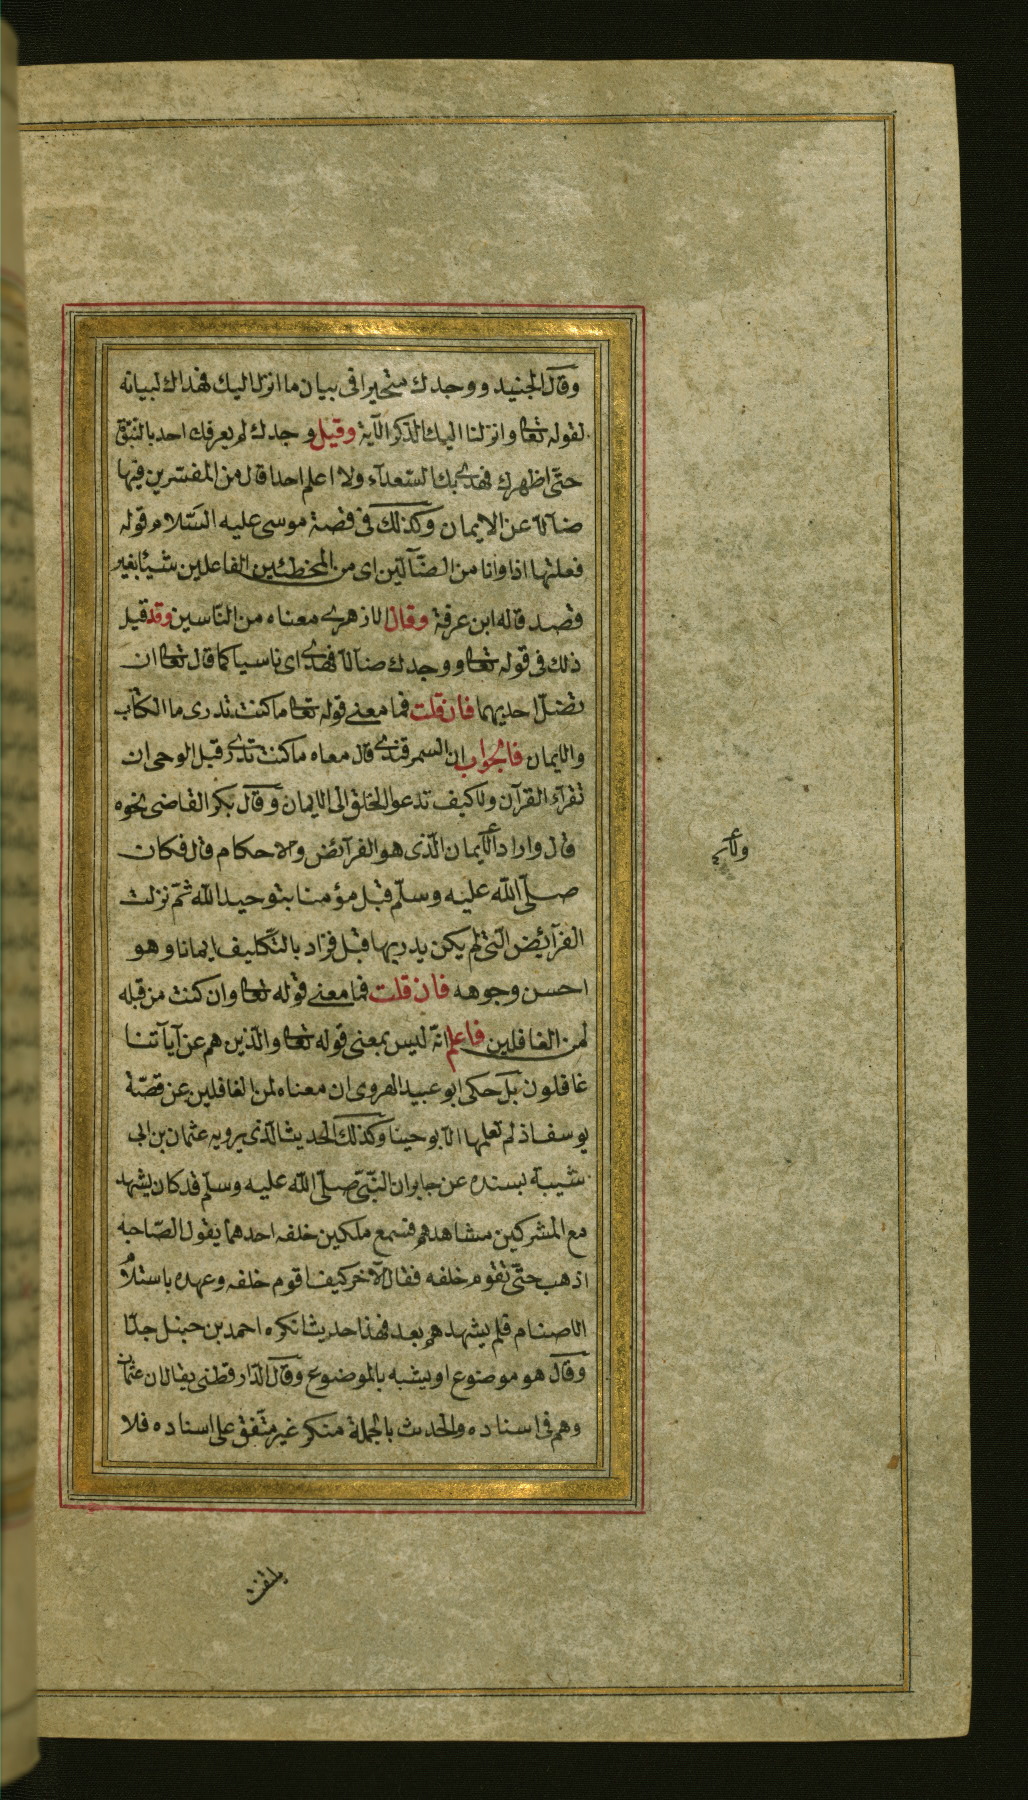 وقال الجنيد ووجدك متحيرا في بيان ما انزل اليك فهداك لبيانه
لقوله تعالى وانزلنا اليك الذكر الآية وقيل وجدك لم يعرفك احد بالنبوة
حتى اظهرك فهدى بك السعدآء ولا اعلم احدا قال من المفسرين فيها
ضآلّا عن الايمان وكذلك في قصة موسى عليه السّلام قوله
فعلتها اذا وانا من الضآلّين اى من المخطئين الفاعلين شيئا بغير
قصد قاله ابن عرفة وقال الازهرى معناه من النّاسين وقد قيل
ذلك في قوله تعالى ووجدك ضآلّا فهدى اى ناسيا كما قال تعالى ان
تضلّ احديهما فان قلت فما معنى قوله تعالى ما كنت تدرى ما الكتاب
والايمان فالجواب ان السمرقندى قال معاه ما كنت تدرى قبل الوحى ان
تقرآء القرآن ولا كيف تدعوا الخلق الى الايمان وقال بكر القاضى نحوه
قال واراد الايمان الّذى هو الفرآئض والاحكام قال فكان
صلّى اللّه عليه وسلّم قبل مؤمنا بتوحيد اللّه ثمّ نزلت
الفرآئض الّتى لم يكن يدريها قبل فزاد بالتكليف ايمانا وهو
احسن وجوهه فان قلت فما معنى قوله تعالى وان كنت من قبله
لمن الغافلين فاعلم انّه ليس بمعنى قوله تعالى والّذين هم عن آياتنا
غافلون بل حكى ابو عبيد الهروى ان معناه لمن الغافلين عن قصّة
يوسف اذ لم تعلمها الّا بوحينا وكذلك الحديث الّذى يرويه عثمان بن ابى
شيبة بسنده عن جابر ان النّبى صلّى اللّه عليه وسلّم قد كان يشهد
مع المشركين مشاهدهم فسمع ملكين خلفه احدهما يقول لصاحبه
اذهب حتّى تقوم خلفه فقال الآخر كيف اقوم خلفه وعهده باستلام
الاصنام فلم يشهدهم بعد فهذا حديث انكره احمد بن حنبل جدّا
وقال هو موضوع او يشبه بالموضوع وقال الدّارقطنى يقال ان عثمان
وهم في اسناده والحديث بالجملة منكر غير متّفق على اسناده فلا
يلتفت